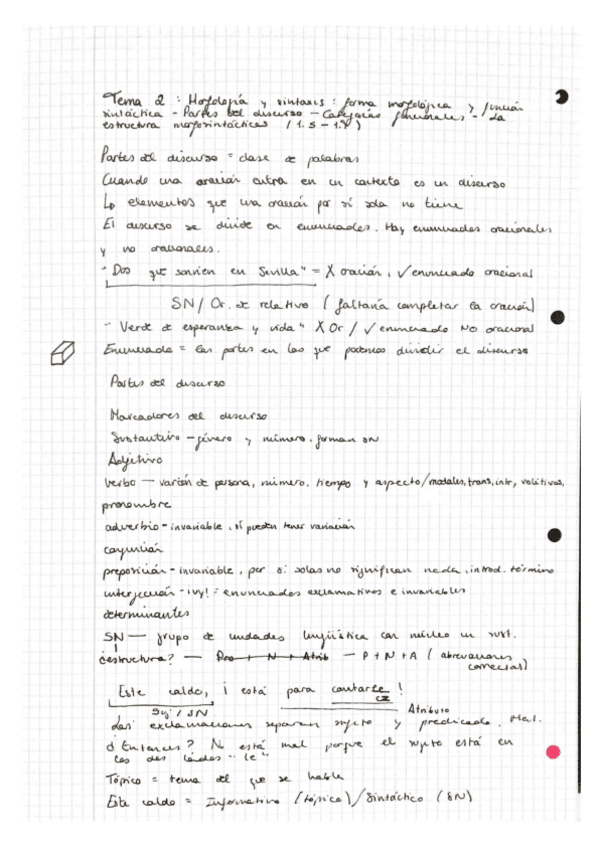 Tema 2 : Morfología y sintaxis : forma morfológica y función
sintáctica - Partes del discurso - Categorías funcionales - La
estructura morfosintácticas (1.5 - 1.7)
Partes del discurso = clase de palabras
Cuando una oración entra en un contexto es un discurso
↳ elementos que una oración por sí sola no tiene
El discurso se divide en enunciados. Hay enunciados oracionales
y no oracionales.
"Dos que sonríen en Sevilla" = X oración, ✓ enunciado oracional
SN / Or. de relativo (faltaría completar la oración)
"Verde de esperanza y vida" X Or / ✓ enunciado NO oracional
Enunciado = las partes en las que podemos dividir el discurso
Partes del discurso
Marcadores del discurso
Sustantivo - género y número, forman SN
Adjetivo
Verbo — varían de persona, número, tiempo y aspecto/modales, trans, intr, volitivos,
pronombre
adverbio - invariable, sí pueden tener variación
conjunción
preposición - invariable, por sí solas no significan nada, introd. término
interjección - ¡uy! = enunciados exclamativos e invariables
determinantes
SN — grupo de unidades lingüística con núcleo un sust.
¿estructura? — Pro + N + Atrib — P + N + A (abreviaciones
correctas)
Este caldo, ¡ está para cantarle !
Suj / SN
CI
Atributo
Las exclamaciones separan sujeto y predicado. Mal.
¿Entonces? No está mal porque el sujeto está en
los dos lados "le"
Tópico = tema del que se habla
Este caldo = Informativo (tópico) / Sintáctico (SN)